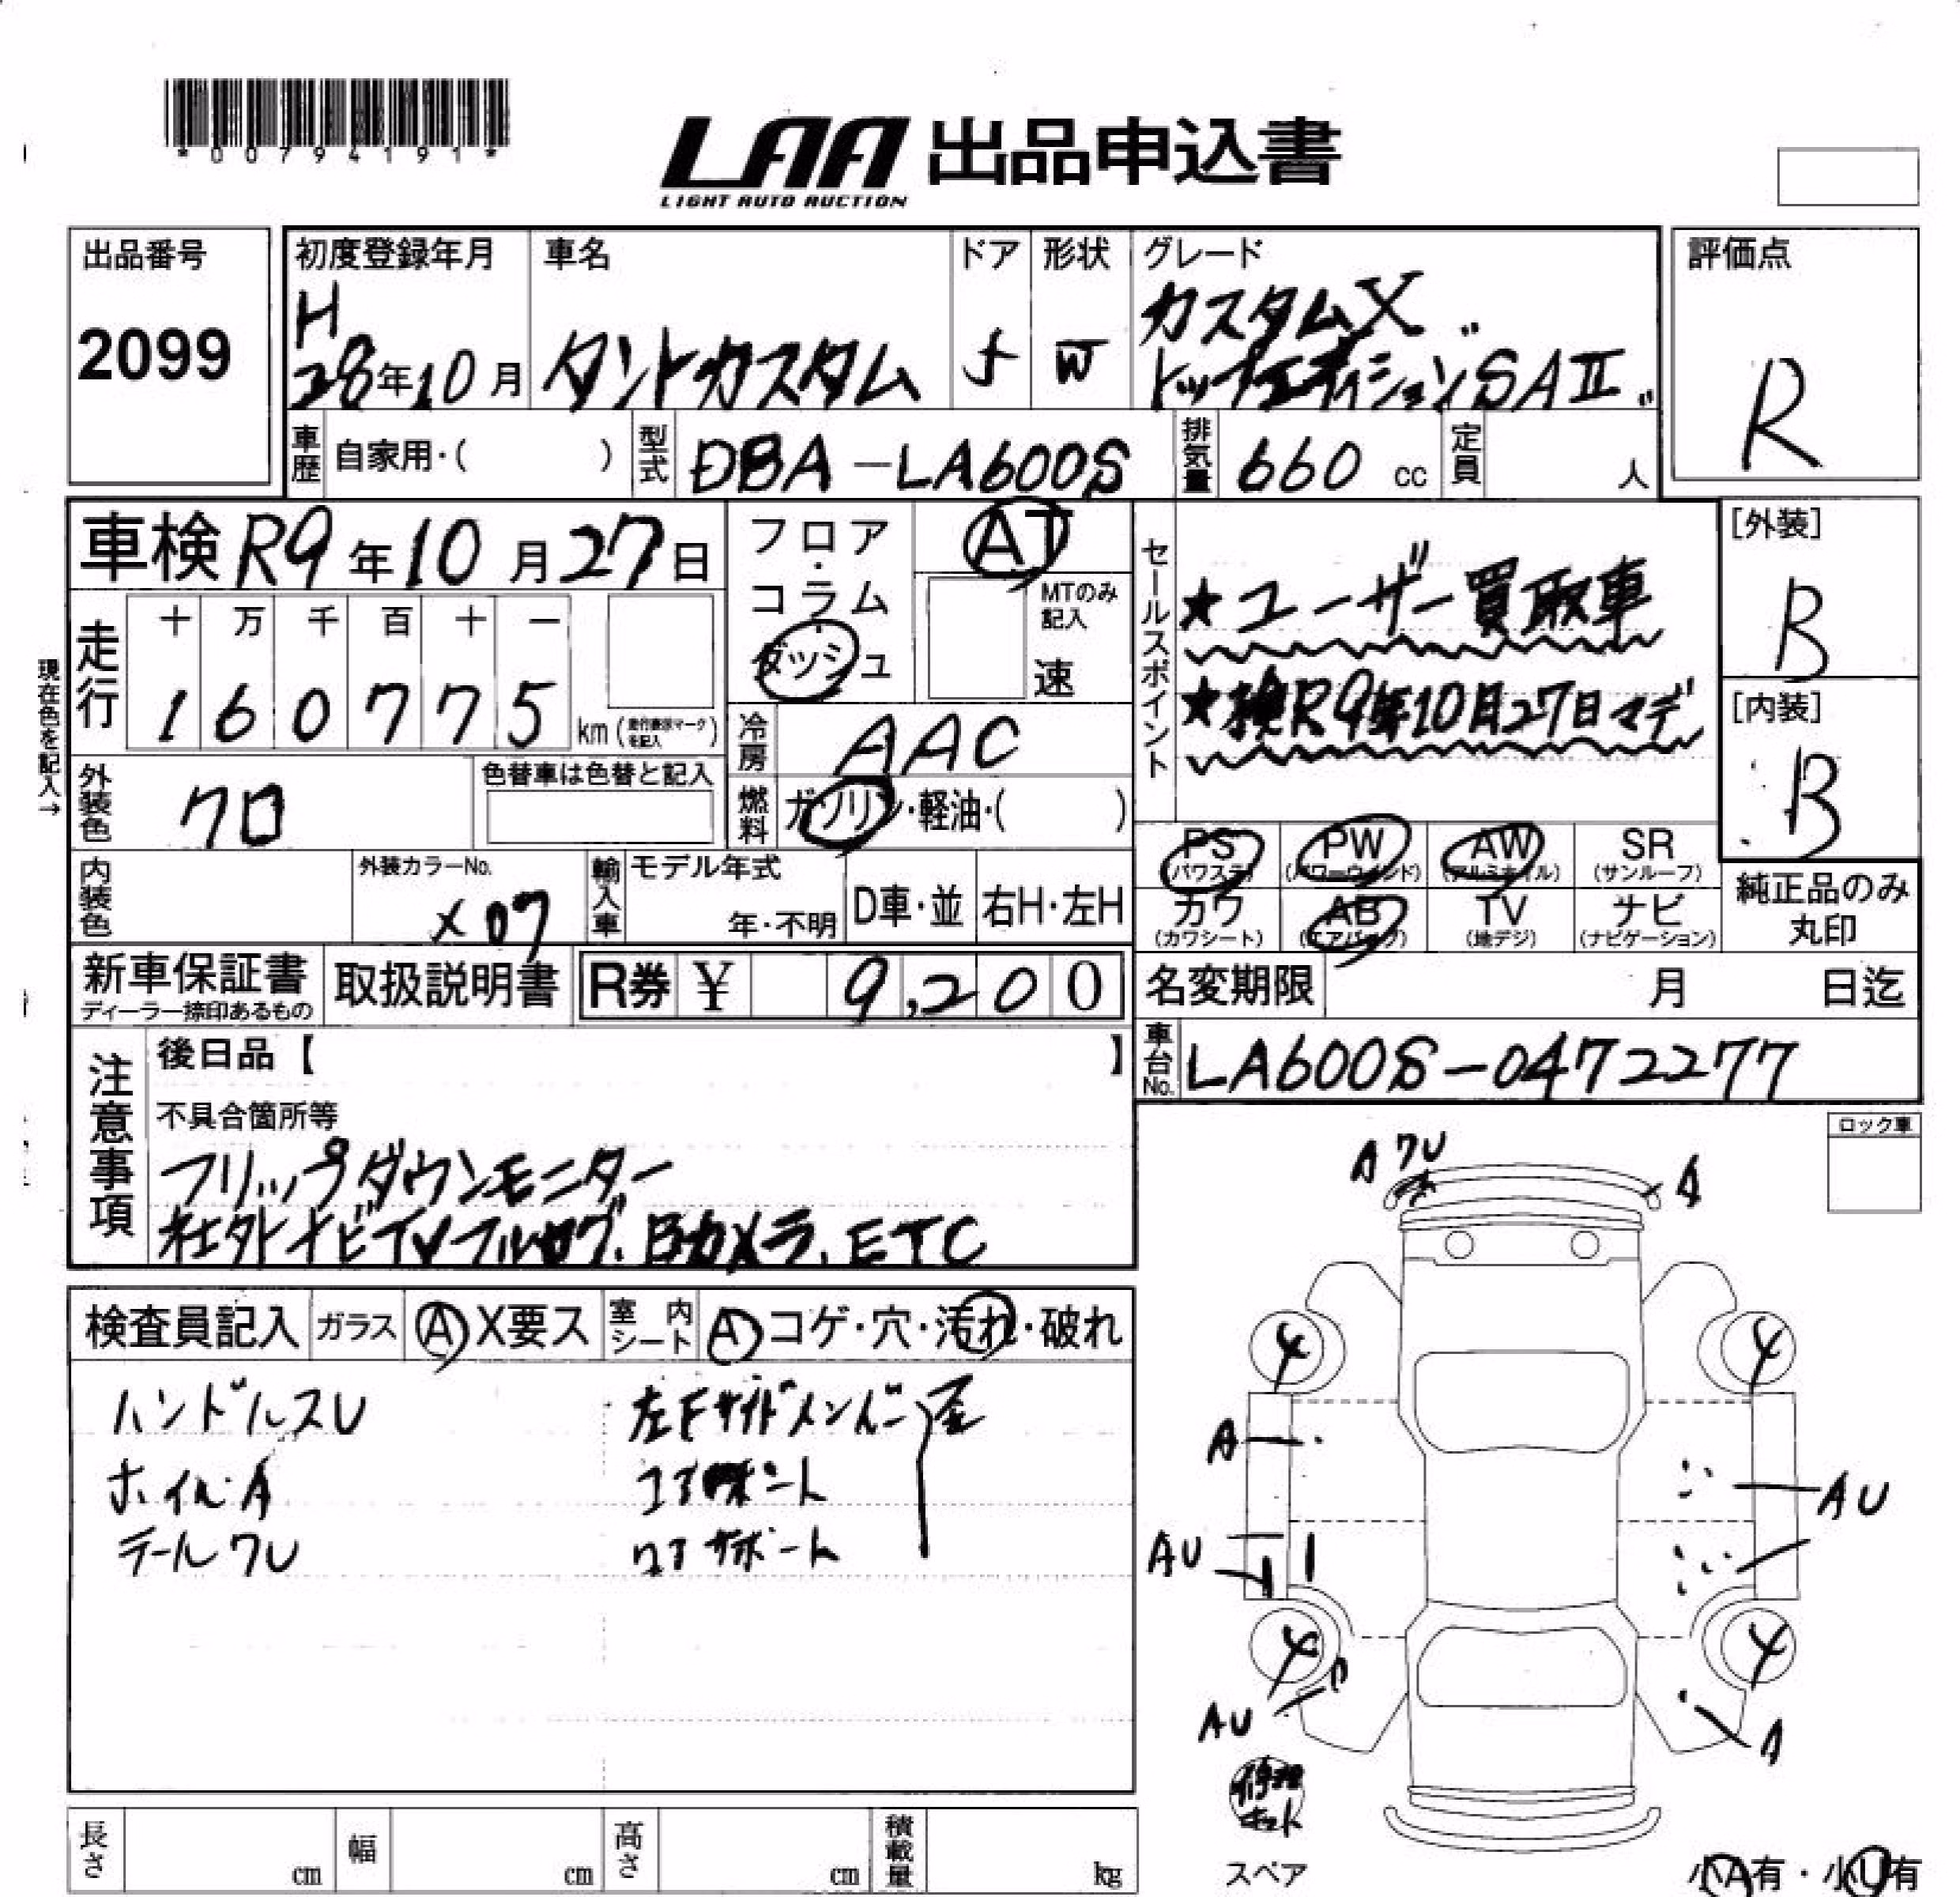 *00794191*
LAA 出品申込書
LIGHT AUTO AUCTION
出品番号
2099
初度登録年月
H
28年10月
車名
タントカスタム
ドア
5
形状
W
グレード
カスタムX
"トップエディションSAⅡ"
評価点
R
車歴 自家用・( )
型式 DBA-LA600S
排気量 660 cc
定員 人
車検 R9年10月27日
フロア・コラム・ダッシュ
AT
MTのみ記入
速
走行
十 万 千 百 十 一
1 6 0 7 7 5 km
現在色を記入→
冷房 AAC
燃料 ガソリン・軽油・( )
外装色 クロ
色替車は色替と記入
内装色
外装カラーNo.
X07
輸入車
モデル年式
年・不明
D車・並
右H・左H
セールスポイント
★ユーザー買取車
★検R9年10月27日マデ
[外装]
B
[内装]
B
PS (パワステ)
PW (パワーウインド)
AW (アルミホイル)
SR (サンルーフ)
カワ (カワシート)
AB (エアバッグ)
TV (地デジ)
ナビ (ナビゲーション)
純正品のみ
丸印
新車保証書
ディーラー捺印あるもの
取扱説明書
R券 ¥ 9,200
名変期限 月 日迄
車台No. LA600S-0472277
注意事項
後日品【 】
不具合箇所等
フリップダウンモニター
社外ナビTVフルセグ.Bカメラ.ETC
ロック車
検査員記入
ガラス A X要ス
室内シート A コゲ・穴・汚れ・破れ
ハンドルスレ
ホイル・A
テールワレ
左Fサイドメンバー
コアサポート
A ワレ
A
4
4
A
AU
AU
4
4
AU
A
修理キット
スペア
長さ cm
幅 cm
高さ cm
積載量 kg
小A有・小U有